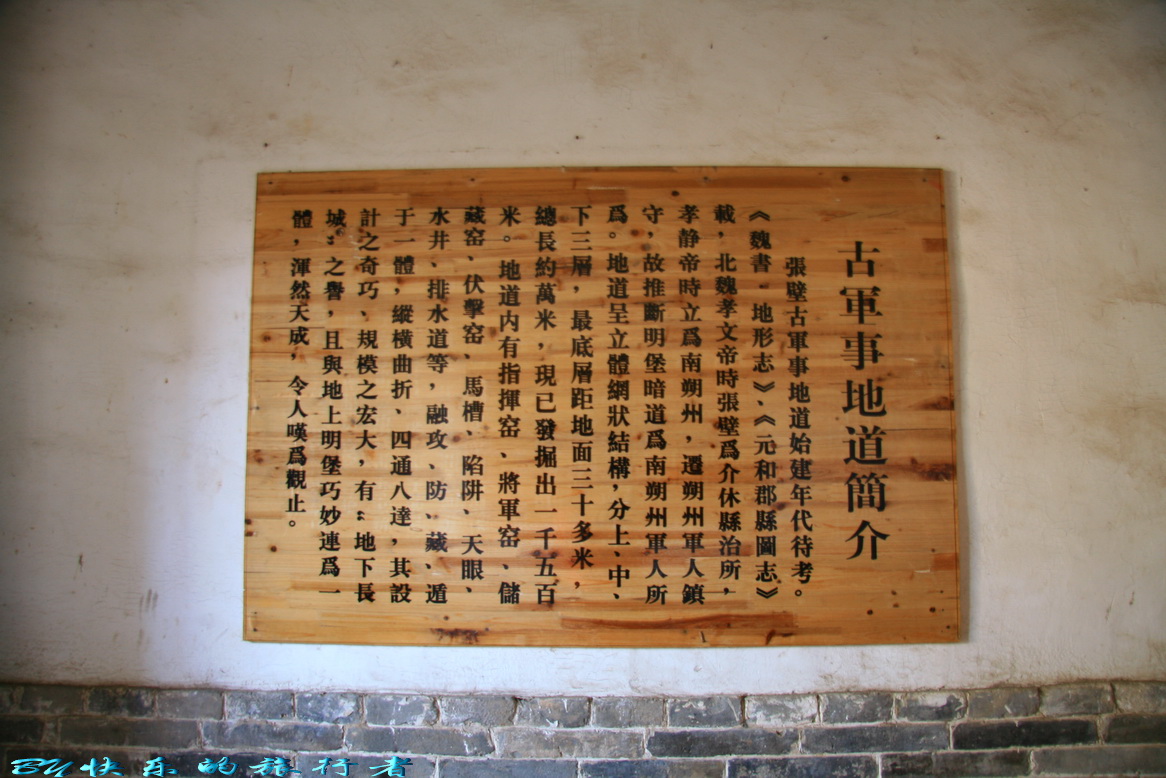 古軍事地道簡介
張壁古軍事地道始建年代待考。
《魏書·地形志》、《元和郡縣圖志》
載，北魏孝文帝時張壁爲介休縣治所，
孝静帝時立爲南朔州，遷朔州軍人鎮
守，故推斷明堡暗道爲南朔州軍人所
爲。地道呈立體網狀結構，分上、中、
下三層，最底層距地面三十多米，
總長約萬米，現已發掘出一千五百
米。地道内有指揮窑、將軍窑、儲
藏窑、伏擊窑、馬槽、陷阱、天眼、
水井、排水道等，融攻、防、藏、遁
于一體，縱橫曲折、四通八達，其設
計之奇巧、規模之宏大，有“地下長
城”之譽，且與地上明堡巧妙連爲一
體，渾然天成，令人嘆爲觀止。
BY快乐的旅行者